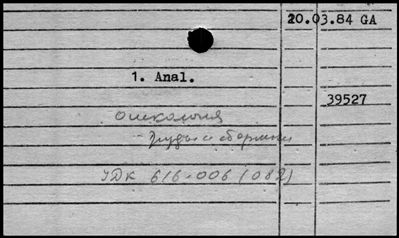 20.03.84 GA
1. Anal.
39527
онкология
труды и сборники
УДК 616-006 (082)